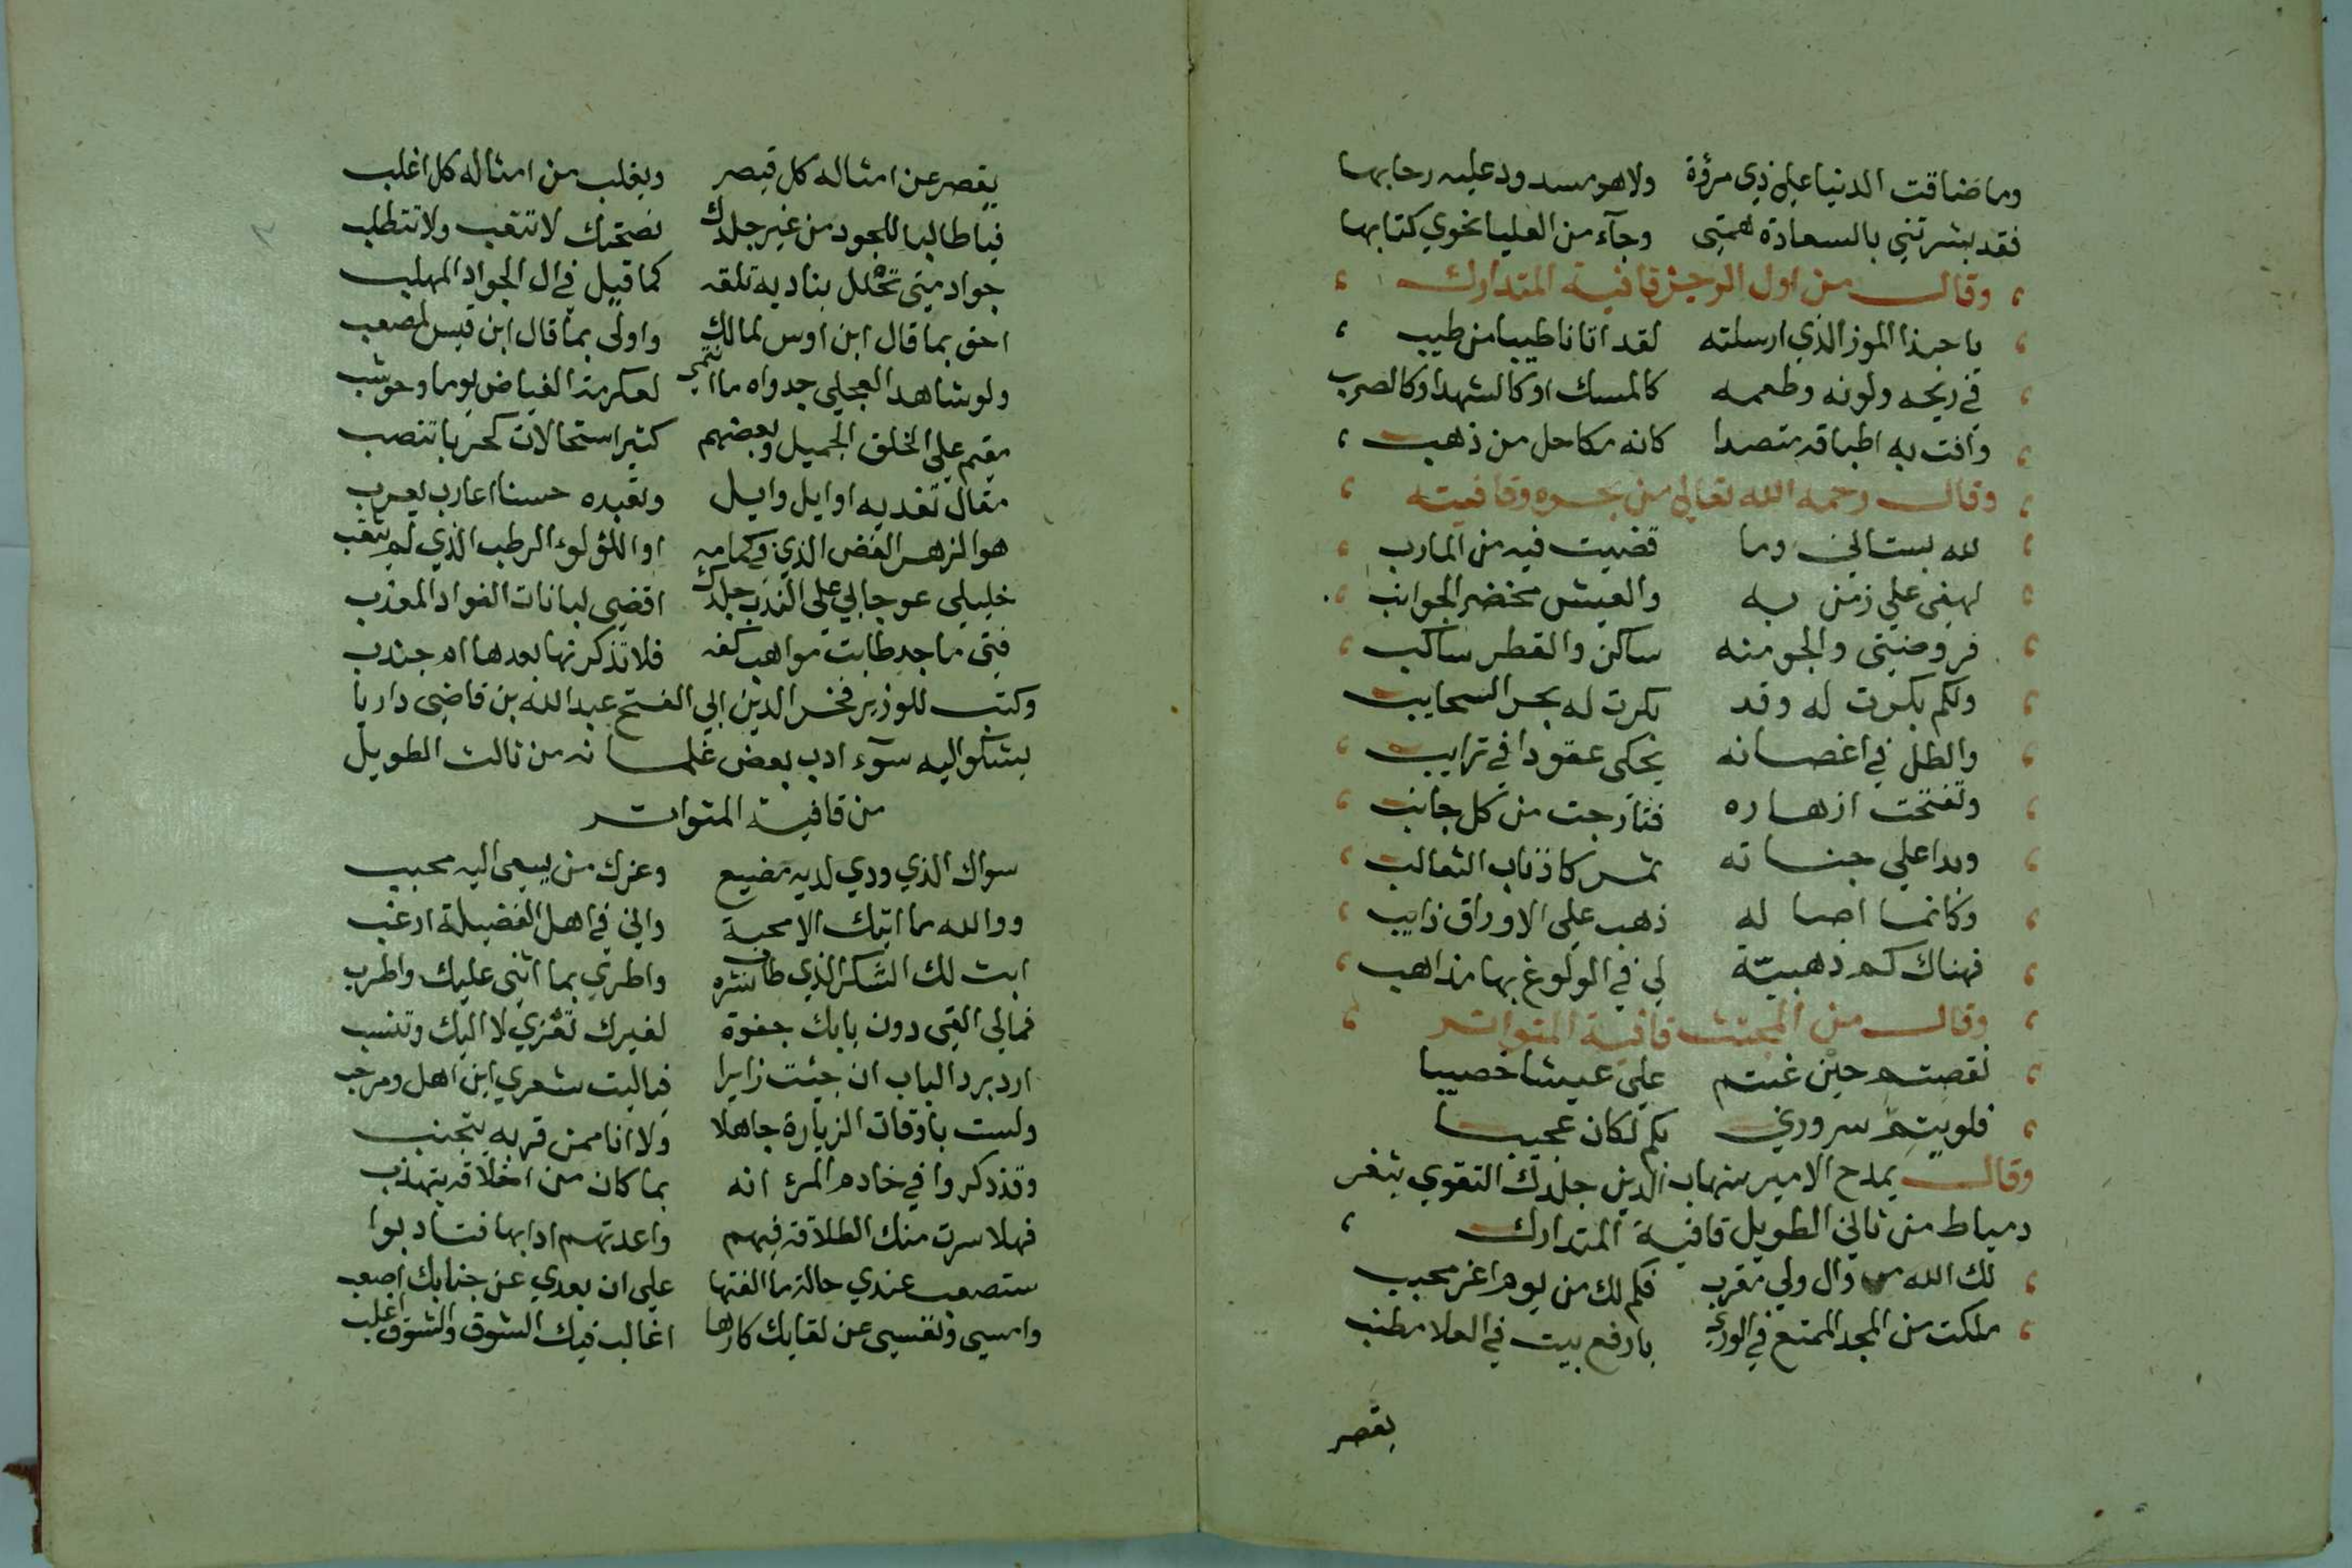 وما ضاقت الدنيا علي ذي مرؤة ولا هو مسدود عليه رحابها
فقد بشرتني بالسعادة همتي وجآء من العليا نحوي كتابها
وقال من اول الرجز قافية المتدارك
يا حبذا الموز الذي ارسلته لقد اتانا طيبا من طيب
في ريحه ولونه وطعمه كالمسك او كالشهد او كالضرب
وافت به اطباقه متضدا كانه مكاحل من ذهب
وقال رحمه الله تعالي من بحره وقافيته
لله بستاني وما قضيت فيه من المارب
لهفي علي زمن به والعيش مخضر الجوانب
فروضيتى والجو منه ساكن والقطر ساكب
ولكم بكرت له وقد بكرت له بحر السحايب
والطل في اغصانه يحكى عقودا في ترايب
وتفتحت ازهاره فتارجت من كل جانب
وبدا علي جنباته ثمر كاذناب الثعالب
وكانما اصاله ذهب علي الاوراق ذايب
فهناك كم ذهبيّة لي في الولوغ بها مذاهب
وقال من المجتث قافية المتواتر
نقصتم حين غبتم علي عيشا خصيبا
فلو يتم سروري بكم لكان عجيبا
وقال يمدح الامير شهاب الدين جلدك التقوي بثغر
دمياط من ثاني الطويل قافية المتدارك
لك الله من وال ولي مقرب فكم لك من يوم اغر محبب
ملكت من المجد الممنع في الوري بارفع بيت في العلا مطنب
يقصر
يقصر عن امثاله كل قيصر ويغلب من امثاله كل اغلب
فيا طالبا للجود من غير جلدك نصحتك لا تتعب ولا تتطلب
جواد متى تحلل بناديه تلقه كما قيل في ال الجواد المهلب
احق بما قال ابن اوس لمالك واولى بما قال ابن قيس لمصعب
ولو شاهد العجلي جدواه ما انتمي لعكرمة الفياض يوما وحوشب
مقيم علي الخلق الجميل وبعضهم كثير استحالات كحربا تنصب
مقال تفديه اوايل وايل وتعبده حسنا اعارب يعرب
هو الزهر الغض الذي في كمامه او اللؤلوء الرطب الذي لم يثقب
خليلي عوجا بي علي الندب جلدك اقضي لبانات الفواد المعذب
فتى ماجد طابت مواهب كفه فلا تذكرنها بعدها ام جندب
وكتب للوزير فخر الدين ابي الفتح عبد الله بن قاضي داريا
يشكوا اليه سوٓء ادب بعض غلمانه من ثالث الطويل
من قافية المتواتر
سواك الذي ودي لديه مضيع وغيرك من يسعى اليه محبب
ووالله ما اتيك الا محبة واني في اهل الفضيلة ارغب
ابث لك الشكر الذي طاب نشره واطري بما اثنى عليك واطرب
فمالي القى دون بابك جفوة لغيرك تعزي لا اليك وتنسب
ارد برد الباب ان جيئت زايرا فياليت شعري اين اهل ومرحب
ولست باوقات الزيارة جاهلا ولا انا ممن قربه يتجنب
وقد ذكروا في خادم المرء انه بما كان من اخلاقه يتهذب
فهلا سرت منك الطلاقة فيهم واعدتهم ادابها فتادبوا
ستصعب عندي حالة ما الفتها علي ان بعدي عن جنابك اصعب
وامسي ونفسي عن لقايك كارها اغالب فيك الشوق والشوق اغلب